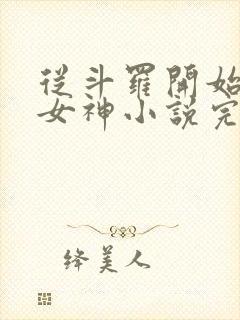 從斗羅開始
女神小說完
绛美人